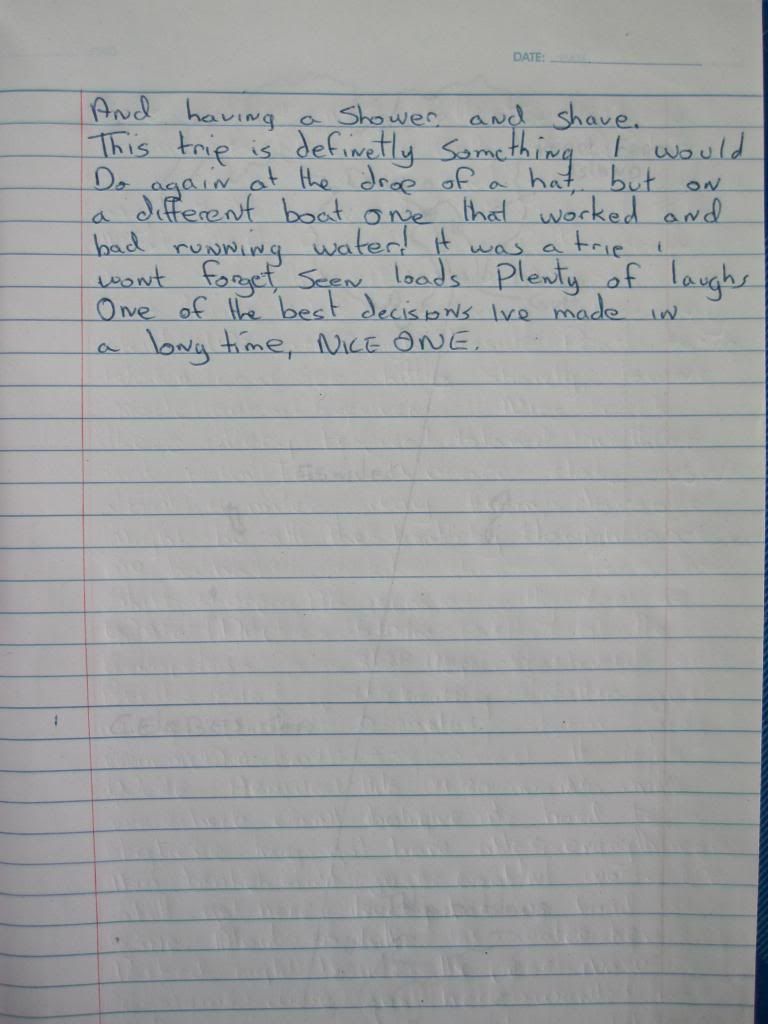 DATE:
And having a Shower and shave.
This trip is definetly Something I would
Do again at the drop of a hat, but on
a different boat one that worked and
had running water! It was a trip I
wont forget, Seen loads Plenty of laughs
One of the best decisions Ive made in
a long time, NICE ONE.